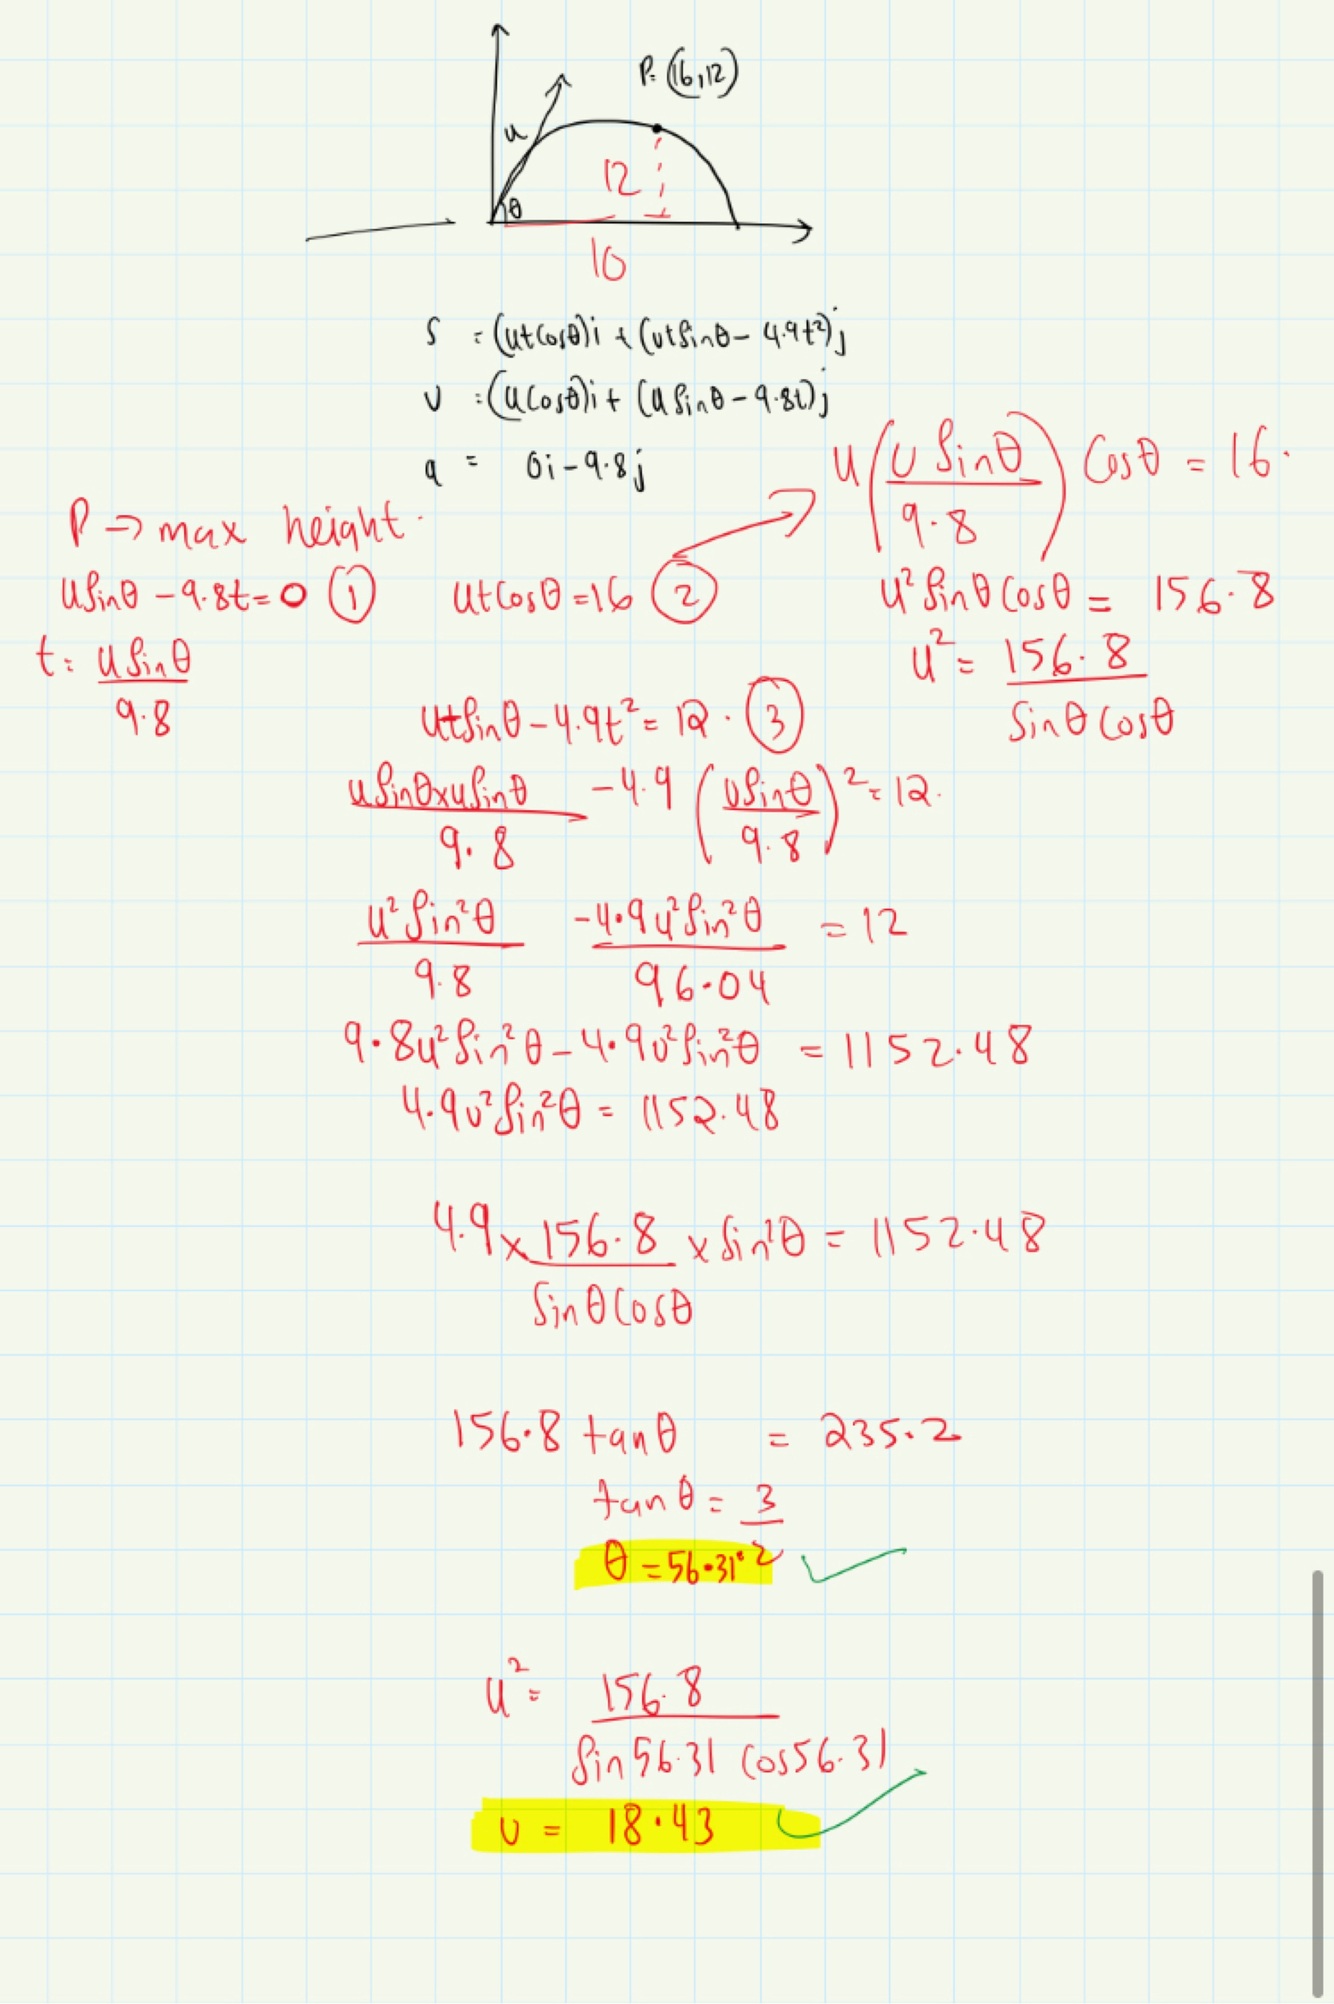 P: (16,12)
u
12
θ
16
s = (utcosθ)i + (utsinθ - 4.9t²)j
v = (ucosθ)i + (usinθ - 9.8t)j
a = 0i - 9.8j
u(usinθ/9.8) cosθ = 16.
P → max height.
usinθ - 9.8t = 0 ①
utcosθ = 16 ②
u² sinθcosθ = 156.8
t = usinθ/9.8
u² = 156.8/sinθcosθ
utsinθ - 4.9t² = 12. ③
usinθ×usinθ/9.8 - 4.9 (usinθ/9.8)² = 12.
u²sin²θ/9.8 -4.9u²sin²θ/96.04 = 12
9.8u²sin²θ - 4.9u²sin²θ = 1152.48
4.9u²sin²θ = 1152.48
4.9 × 156.8/sinθcosθ × sin²θ = 1152.48
156.8 tanθ = 235.2
tanθ = 3/2
θ = 56.31°
u² = 156.8/sin56.31 cos56.31
u = 18.43